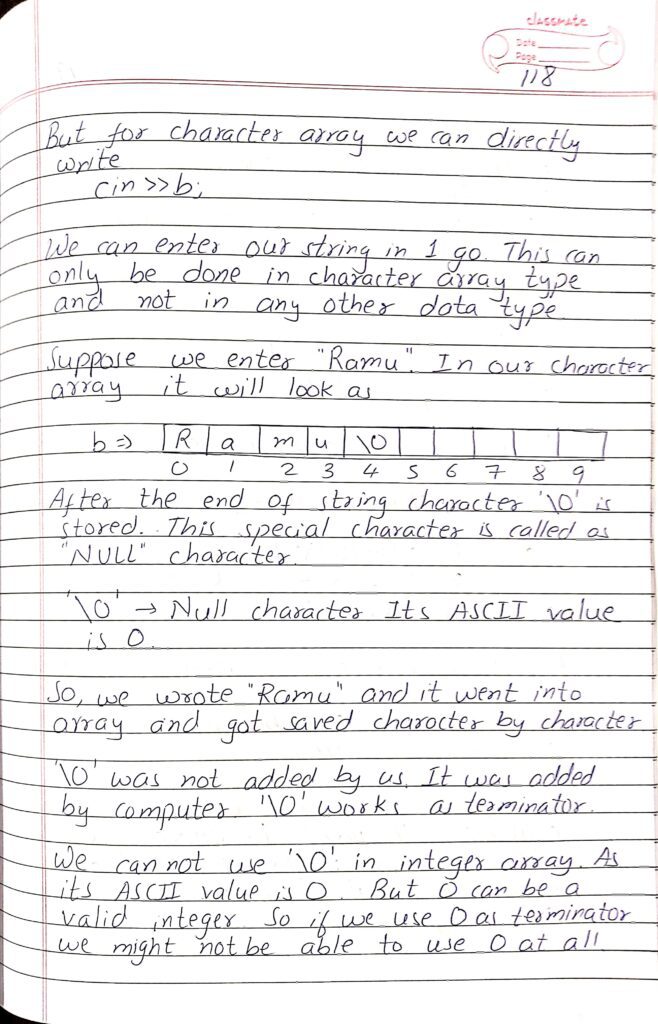 classmate
Date
Page
118
But for character array we can directly
write
cin >> b;
We can enter our string in 1 go. This can
only be done in character array type
and not in any other data type
Suppose we enter "Ramu". In our character
array it will look as
b ⇒ R a m u \0
0 1 2 3 4 5 6 7 8 9
After the end of string character '\0' is
stored. This special character is called as
"NULL" character.
'\0' → Null character Its ASCII value
is 0.
So, we wrote "Ramu" and it went into
array and got saved character by character
'\0' was not added by us. It was added
by computer. '\0' works as terminator.
We can not use '\0' in integer array. As
its ASCII value is 0. But 0 can be a
valid integer So if we use 0 as terminator
we might not be able to use 0 at all